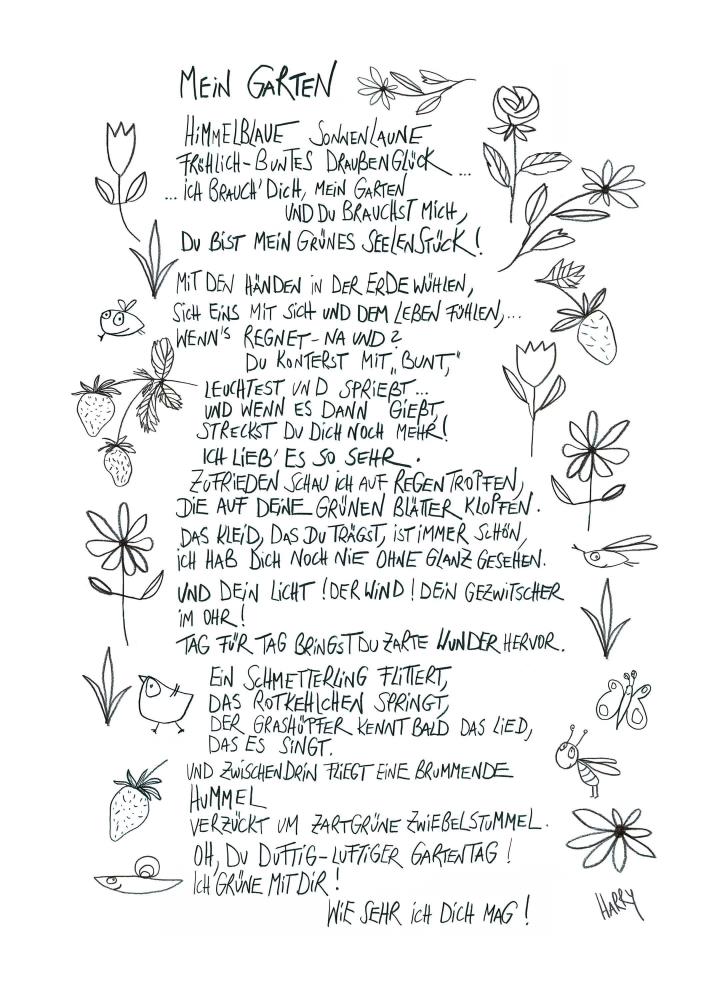 MEIN GARTEN
HIMMELBLAUE SONNENLAUNE
FRÖHLICH-BUNTES DRAUßENGLÜCK ...
... ICH BRAUCH' DICH, MEIN GARTEN
UND DU BRAUCHST MICH,
DU BIST MEIN GRÜNES SEELENSTÜCK!
MIT DEN HÄNDEN IN DER ERDE WÜHLEN,
SICH EINS MIT SICH UND DEM LEBEN FÜHLEN,...
WENN'S REGNET-NA UND?
DU KONTERST MIT „BUNT,"
LEUCHTEST UND SPRIEßT...
UND WENN ES DANN GIEßT,
STRECKST DU DICH NOCH MEHR!
ICH LIEB' ES SO SEHR.
ZUFRIEDEN SCHAU ICH AUF REGENTROPFEN,
DIE AUF DEINE GRÜNEN BLÄTTER KLOPFEN.
DAS KLEID, DAS DU TRÄGST, IST IMMER SCHÖN,
ICH HAB DICH NOCH NIE OHNE GLANZ GESEHEN.
UND DEIN LICHT! DER WIND! DEIN GEZWITSCHER
IM OHR!
TAG FÜR TAG BRINGST DU ZARTE WUNDER HERVOR.
EIN SCHMETTERLING FLITTERT,
DAS ROTKEHLCHEN SPRINGT,
DER GRASHÜPFER KENNT BALD DAS LIED,
DAS ES SINGT.
UND ZWISCHENDRIN FLIEGT EINE BRUMMENDE
HUMMEL
VERZÜCKT UM ZARTGRÜNE ZWIEBELSTUMMEL.
OH, DU DUFTIG-LUFTIGER GARTENTAG!
ICH GRÜNE MIT DIR!
WIE SEHR ICH DICH MAG!
HARRY